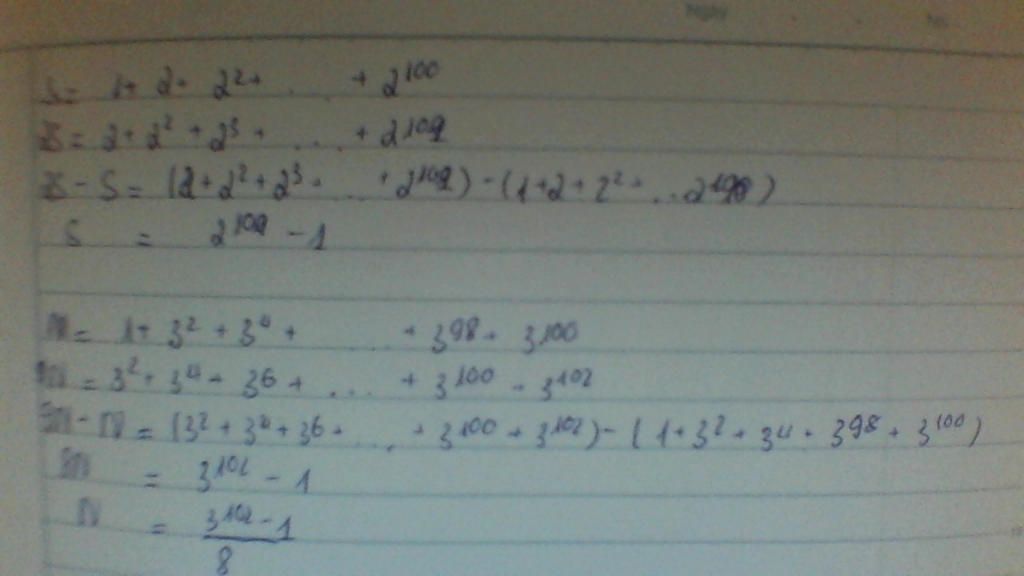 S = 1 + 2 + 2² + ... + 2¹⁰⁰
= 2 + 2² + 2³ + ... + 2¹⁰¹
- S = (2 + 2² + 2³ + ... + 2¹⁰¹) - (1 + 2 + 2² + ... 2¹⁰⁰)
S = 2¹⁰¹ - 1
N = 1 + 3² + 3⁴ + ... + 3⁹⁸ + 3¹⁰⁰
= 3² + 3⁴ + 3⁶ + ... + 3¹⁰⁰ + 3¹⁰²
- N = (3² + 3⁴ + 3⁶ + ... + 3¹⁰⁰ + 3¹⁰²) - (1 + 3² + 3⁴ + 3⁹⁸ + 3¹⁰⁰)
= 3¹⁰² - 1
N = 3¹⁰² - 1
8